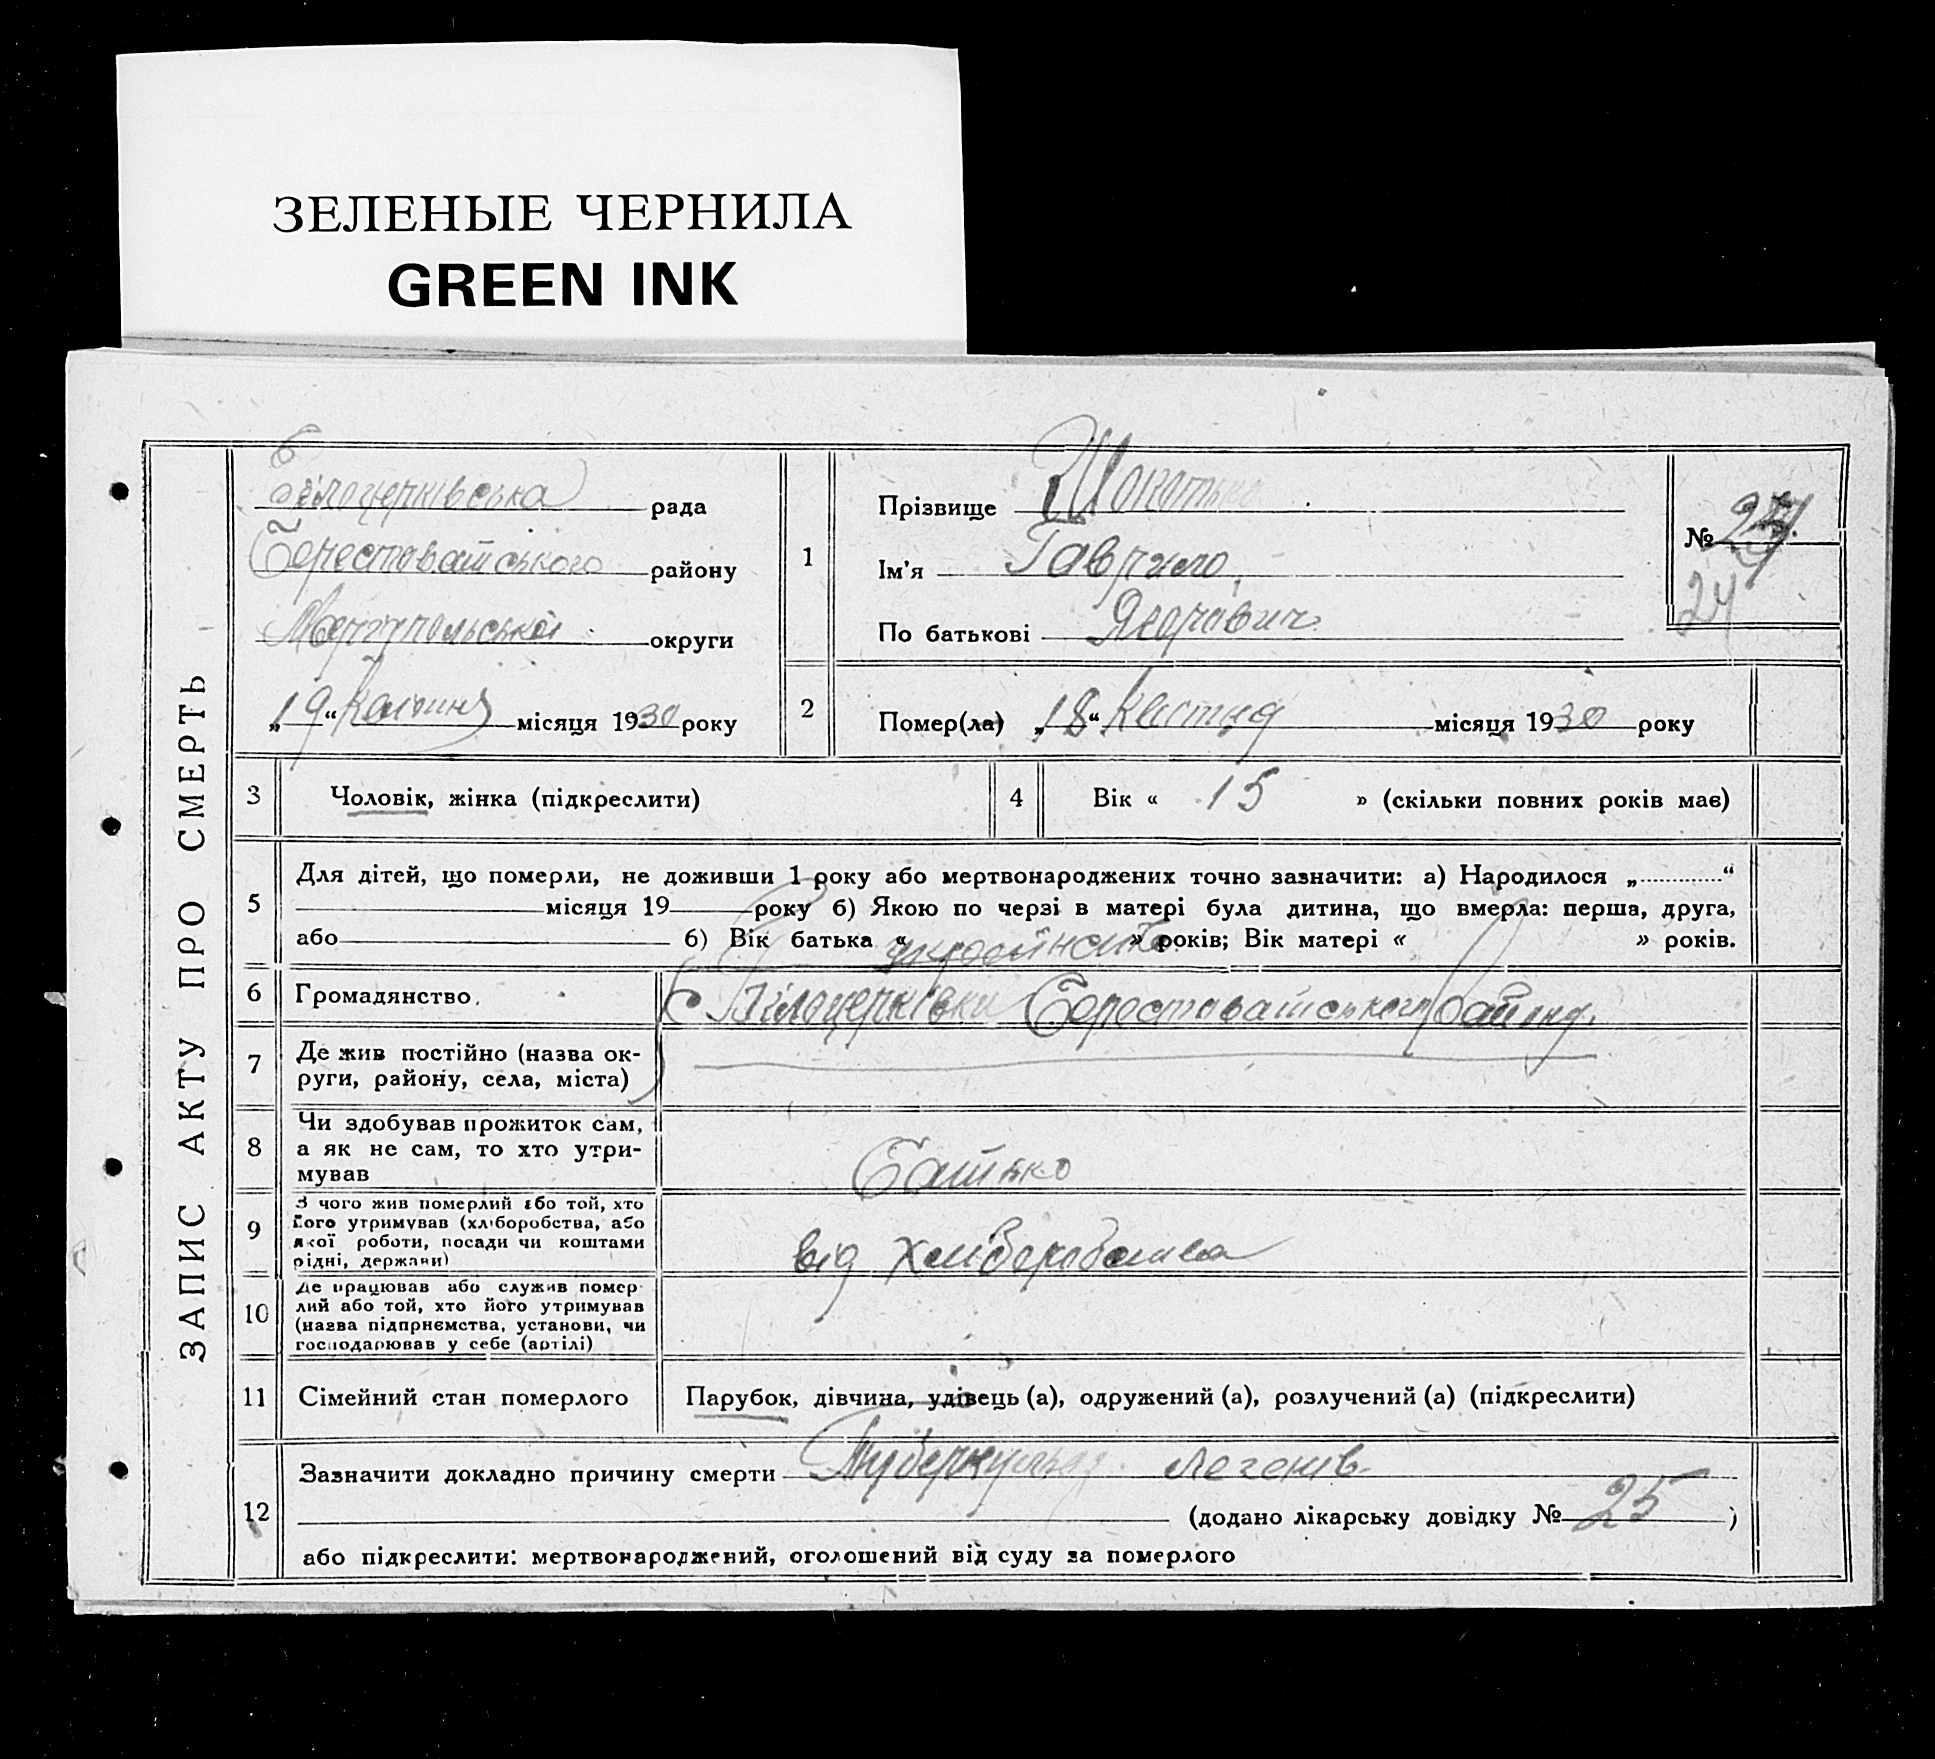 ЗЕЛЕНЫЕ ЧЕРНИЛА
GREEN INK
ЗАПИС АКТУ ПРО СМЕРТЬ
Білоцерківська рада
Берестоватського району
Маріупольської округи
„19“ 1930 року місяця
1
Прізвище
Ім'я Гаврило
По батькові
№
24
2
Помер(ла) „18“ місяця 1930 року
3
Чоловік, жінка (підкреслити)
4
Вік « 15 » (скільки повних років має)
5
Для дітей, що померли, не доживши 1 року або мертвонароджених точно зазначити: а) Народилося „ “
місяця 19 року б) Якою по черзі в матері була дитина, що вмерла: перша, друга,
або б) Вік батька « » років; Вік матері « » років.
6
Громадянство
українське
с Білоцерківки Берестоватського району.
7
Де жив постійно (назва ок-
руги, району, села, міста)
8
Чи здобував прожиток сам,
а як не сам, то хто утри-
мував
Батько
9
З чого жив померлий або той, хто
його утримував (хліборобства, або
якої роботи, посади чи коштами
рідні, держави)
від хліборобства
10
Де працював або служив помер-
лий або той, хто його утримував
(назва підпрнємства, установи, чи
господарював у себе (артілі)
11
Сімейний стан померлого
Парубок, дівчина, удівець (а), одружений (а), розлучений (а) (підкреслити)
12
Зазначити докладно причину смерти Туберкульоз легенів
(додано лікарську довідку № 25 )
або підкреслити: мертвонароджений, оголошений від суду за померлого